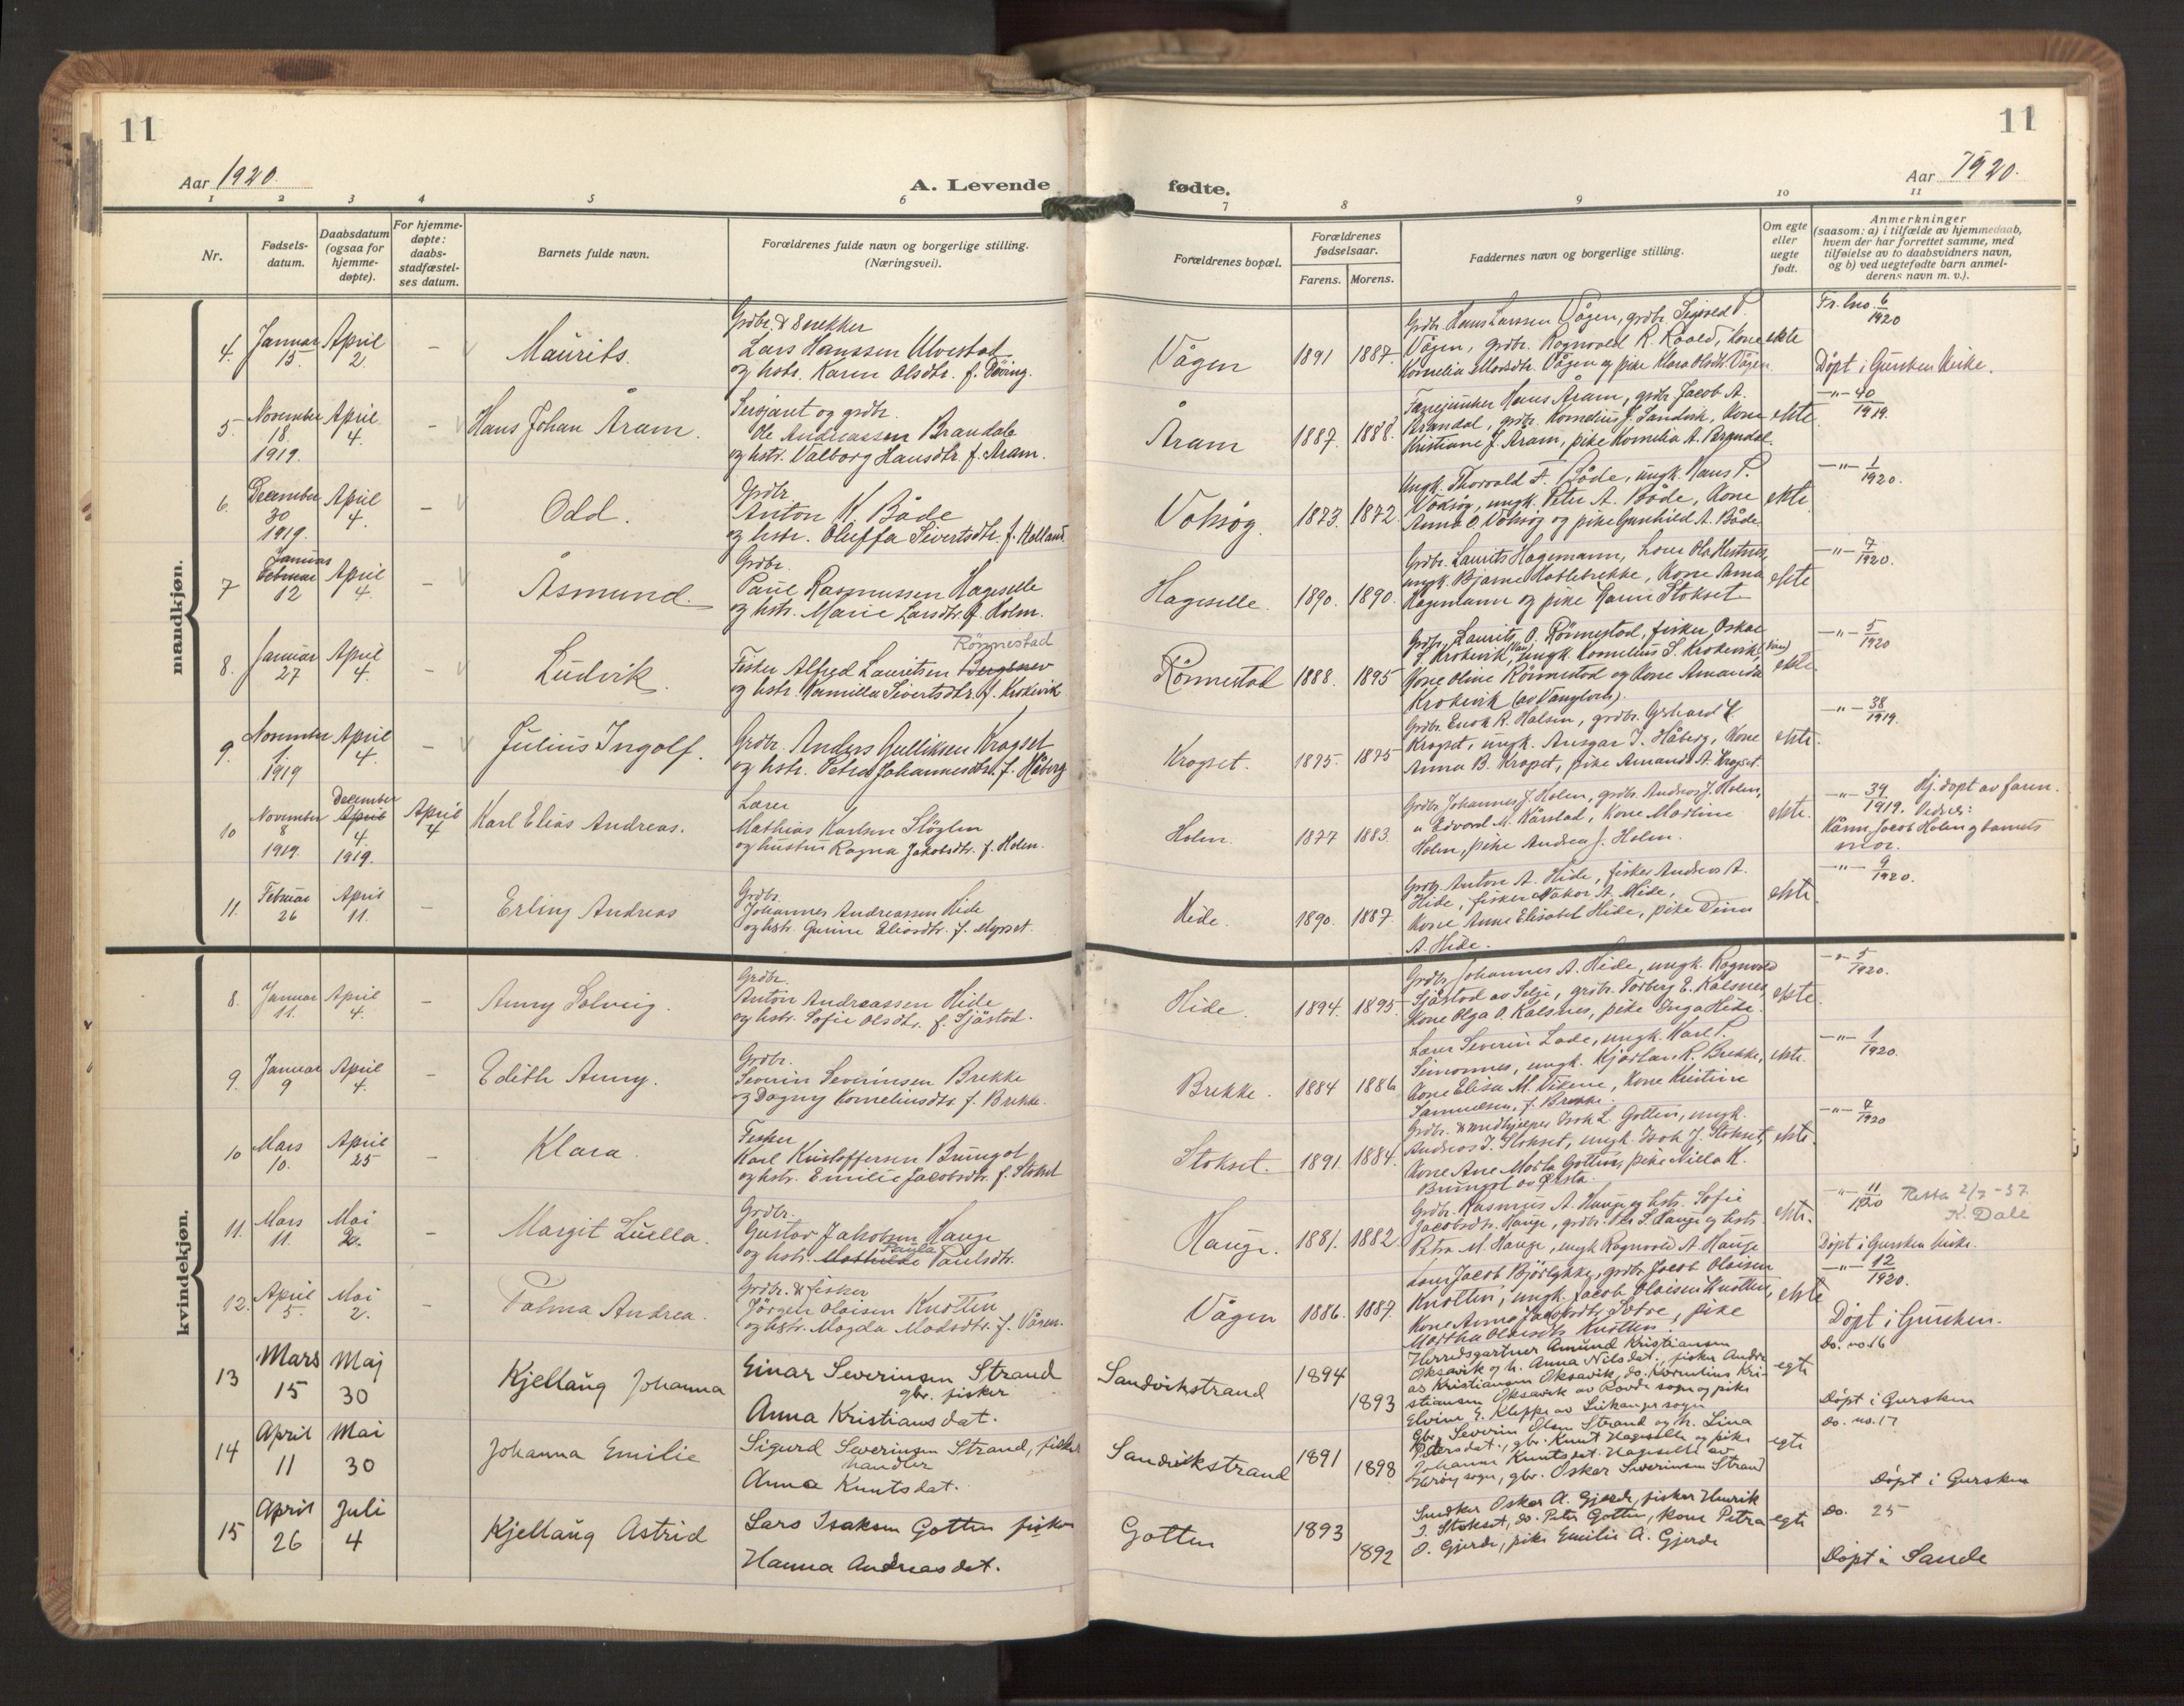 11
Aar 1920.
A. Levende
1 2 3 4 5 6
Nr.
Fødsels-
datum.
Daabsdatum
(ogsaa for
hjemme-
døpte).
For hjemme-
døpte:
daabs-
stadfæstel-
ses datum.
Barnets fulde navn.
Forældrenes fulde navn og borgerlige stilling.
(Næringsvei).
mandkjøn.
4. Januar 15. April 2. – Maurits.
Grdbr. & Snekker
Lars Hanssen Ulvestad
og hstr. Karen Olsdtr. f. Döving.
5. November 18. 1919. April 4. – Hans Johan Åram.
Sersjant og grdbr.
Ole Andreassen Brandal
og hstr. Valborg Hansdtr. f. Åram.
6. December 30 1919. April 4. – Odd.
Grdbr.
Anton K. Både
og hstr. Oluffa Sivertsdtr. f. Holland.
7 Januar Februar 12 April 4. – Åsmund.
Grdbr.
Paul Rasmussen Hageselle
og hstr. Marie Larsdtr. f. Holm.
8. Januar 27 April 4. – Ludvik.
Rönnestad
Fisker Alfred Lauritsen
og hstr. Kamilla Sivertsdtr. f. Krokvik
9. November 1 1919 April 4. – Julius Ingolf.
Grdbr. Anders Gulliksen Krogset
og hstr. Petra Johannesdtr. f. Håberg
10 November 8 1919. December April 4. 1919. April 4 Karl Elias Andreas.
Lærer
Mathias Karlsen Slögten
og hustru Ragna Jakobsdtr. f. Holm.
11. Februar 26 April 11. – Erling Andreas
Grdbr.
Johannes Andreassen Hide
og hstr. Gurine Eliasdtr. f. Myrset.
kvindekjøn.
8. Januar 11. April 4. – Anny Solveig.
Grdbr.
Anton Andreassen Hide
og hstr. Sofie Olsdtr. f. Sjåstad.
9. Januar 9 April 4. – Edith Anny.
Grdbr.
Severin Severinsen Brekke
og Dagny Korneliusdtr. f. Brekke.
10 Mars 10. April 25 – Klara.
Fisker
Karl Kristoffersen Brungot
og hstr. Emilie Jacobsdtr. f. Stokset
11. Mars 11. Mai 2. – Margit Luella.
Grdbr.
Gustav Jakobsen Hauge
Paula
og hstr. Mathilde Paulsdtr.
12. April 5. Mai 2. – Palma Andrea.
Grdbr. & fisker
Jörgen Olaisen Knotten
og hstr. Magda Madsdtr. f. Vågen.
13 Mars 15 Maj 30 Kjellaug Johanna
Einar Severinsen Strand
gbr. fisker
Anna Kristiansdat.
14 April 11 Mai 30 Johanna Emilie
Sigurd Severinsen Strand, fisker
handler
Anna Knutsdat.
15 April 26 Juli 4 Kjellaug Astrid
Lars Isaksen Gotten fisker
Hanna Andreasdat.
11
Aar 1920.
fødte.
7 8 9 10 11
Forældrenes bopæl.
Forældrenes
fødselsaar.
Farens. Morens.
Faddernes navn og borgerlige stilling.
Om egte
eller
uegte
født.
Anmerkninger
(saasom: a) i tilfælde av hjemmedaab,
hvem der har forrettet samme, med
tilføielse av to daabsvidners navn,
og b) ved uegtefødte barn anmel-
derens navn m. v.).
Vågen 1891 1887.
Grdbr. Hans Larssen Vågen, grdbr. Sigvald P.
Vågen, grdbr. Ragnvald R. Råald, kone
Kornelia Madsdtr. Vågen og pike Klara Olsdtr. Vågen
ekte
Fr. lno. 6/1920
Döpt i Gursken kirke.
Åram 1887. 1888.
Fanejunker Hans Åram, grdbr. Jacob A.
Brandal, grdbr. Kornelius J. Sandvik, kone
Kristiane J. Åram, pike Kornelia A. Brandal.
ekte
–"– 40/1919.
Voksøg. 1873. 1872.
Ungk. Thorvald A. Både, ungk. Hans P.
Voksøg, ungk. Peter A. Både, kone
Anna O. Voksøg og pike Gunhild A. Både
ekte
–"– 1/1920.
Hageselle. 1890. 1890.
Grdbr. Laurits Hagemann, Lars Ola Hestnes,
ungk. Bjarne Hatlebrekke, kone Anna
Hagemann og pike Karin Stokset
ekte
–"– 7/1920.
Rönnestad 1888. 1895
Grdbr. Laurits O. Rönnestad, fisker Oskar
S. Krokvik, ungk. Kornelius S. Krokvik,
kone Oline Rönnestad og kone Amanda
Krokvik (av Vanylven).
ekte
–"– 5/1920
Krogset. 1875. 1875
Grdbr. Enok R. Halsen, grdbr. Gerhard L.
Krogset, ungk. Ansgar J. Håberg, kone
Anna B. Krogset, pike Amanda A. Krogset.
ekte.
–"– 38/1919.
Holm. 1877 1883.
Grdbr. Johannes J. Holen, grdbr. Andreas J. Holen,
" Edvard M. Kårstad, kone Martine
Holm, pike Andrea J. Holm.
ekte.
–"– 39/1919. Hj. döpt av faren.
Vidner:
Kårm. Jacob Holm og barnets
mor.
Hide. 1890. 1887.
Grdbr. Anton A. Hide, fisker Andreas A.
Hide, fisker Håkon A. Hide,
kone Anne Elisabet Hide, pike Dina
A. Hide.
ekte.
–"– 9/1920.
Hide. 1894. 1895.
Grdbr. Johannes A. Hide, ungk. Ragnvald
Sjåstad av Selje, grdbr. Torberg E. Kalsnes,
kone Olga O. Kalsnes, pike Inga Hide.
ekte.
–"– 5/1920.
Brekke. 1884 1886
Lærer Severin Lade, ungk. Karl P.
Seimonnes, ungk. Kjartan R. Brekke,
kone Elisa M. Vikene, kone Kristine
Samuelsen, f. Brekke.
ekte.
–"– 1/1920.
Stokset. 1891. 1884.
Grdbr. & Isak L. Gotten, ungk.
Andreas I. Stokset, ungk. Isak J. Stokset,
kone Ane Marta Gotten, pike Nilla K.
Brungot av Ørsta.
ekte.
–"– 7/1920
Hauge. 1881. 1882.
Grdbr. Rasmus A. Hauge og hstr. Sofie
Jacobsdtr. Hauge, grdbr. Per S. Hauge og hstr.
Petra M. Hauge, ungk Ragnvald A. Hauge
ekte.
–"– 11/1920 2/3 -37.
K. Dale
Döpt i Gursken kirke.
Vågen 1886. 1887.
Lærer Jacob Björlykke, grdbr. Jacob Olaisen
Knotten, ungk. Jacob Olaisen Knotten,
kone Anna Jacobsdtr. Sætre, pike
Martha Olaisdtr Knotten.
ekte
–"– 12/1920.
Döpt i Gursken.
Sandvikstrand 1894 1893
Herredsgartner Amund Kristiansen
Oksavik og h. Anna Nilsdat., fisker Andre
as Kristiansen Oksavik, do. Kornelius Kri-
stiansen Oksavik av Rovde sogn og pike
Elvine E. Kleppe av Leikanger sogn
egte
Do. no. 16
Döpt i Gursken
Sandvikstrand 1891 1898
Gbr. Severin Olsen Strand og h. Lina
Petersdat., gbr. Knut Hageselle og pike
Johanne Knutsdat. Hageselle av
Herøy sogn, gbr. Oskar Severinsen Strand
egte
Do. no. 17
Döpt i Gursken
Gotten 1893 1892
Snedker Oskar A. Gjerde, fisker Henrik
I. Stokset, do. Peter Gotten, kone Petra
O. Gjerde, pike Emilie A. Gjerde
egte
Do. 25
Döpt i Sande